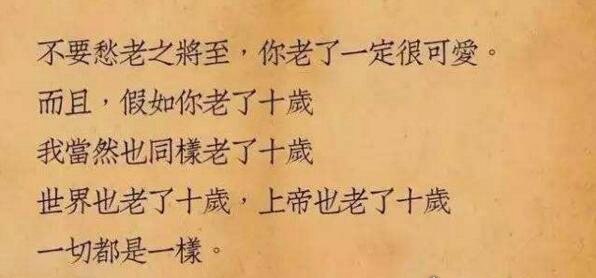 不要愁老之將至，你老了一定很可愛。
而且，假如你老了十歲
我當然也同樣老了十歲
世界也老了十歲，上帝也老了十歲
一切都是一樣。